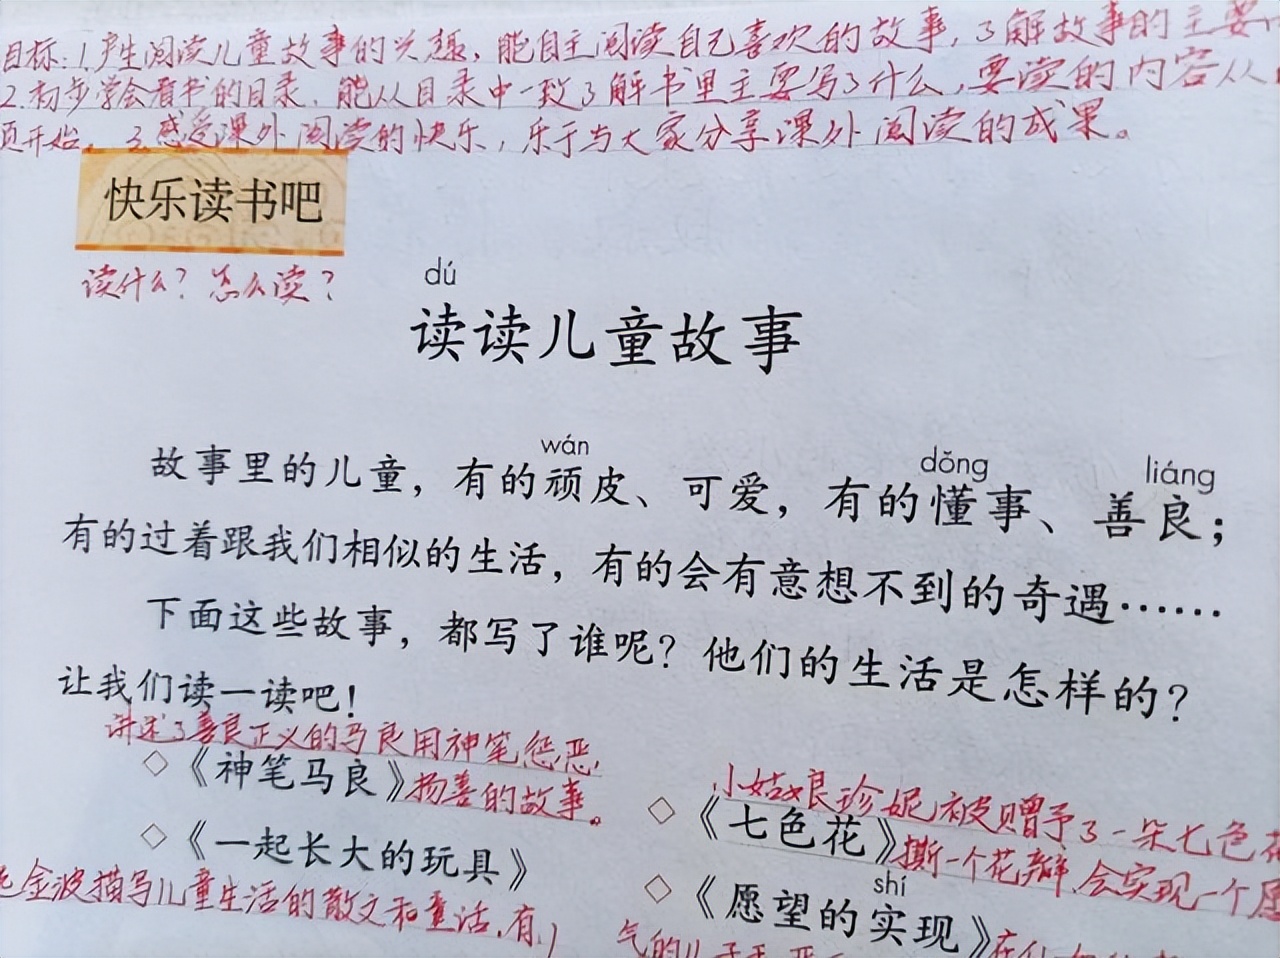 目标:1.产生阅读儿童故事的兴趣，能自主阅读自己喜欢的故事，了解故事的主要
2.初步学会看书的目录，能从目录中一致了解书里主要写了什么，要读的内容从
页开始。3.感受课外阅读的快乐，乐于与大家分享课外阅读的成果。
快乐读书吧
读什么？怎么读？
dú
读读儿童故事
wán dǒng liáng
故事里的儿童，有的顽皮、可爱，有的懂事、善良；
有的过着跟我们相似的生活，有的会有意想不到的奇遇……
下面这些故事，都写了谁呢？他们的生活是怎样的？
让我们读一读吧！
讲述了善良正义的马良用神笔惩恶
◇《神笔马良》扬善的故事。
小姑娘珍妮被赠予了一朵七色花
◇《七色花》撕一个花瓣，会实现一个愿
◇《一起长大的玩具》
金波描写儿童生活的散文和童话，有
shí
◇《愿望的实现》